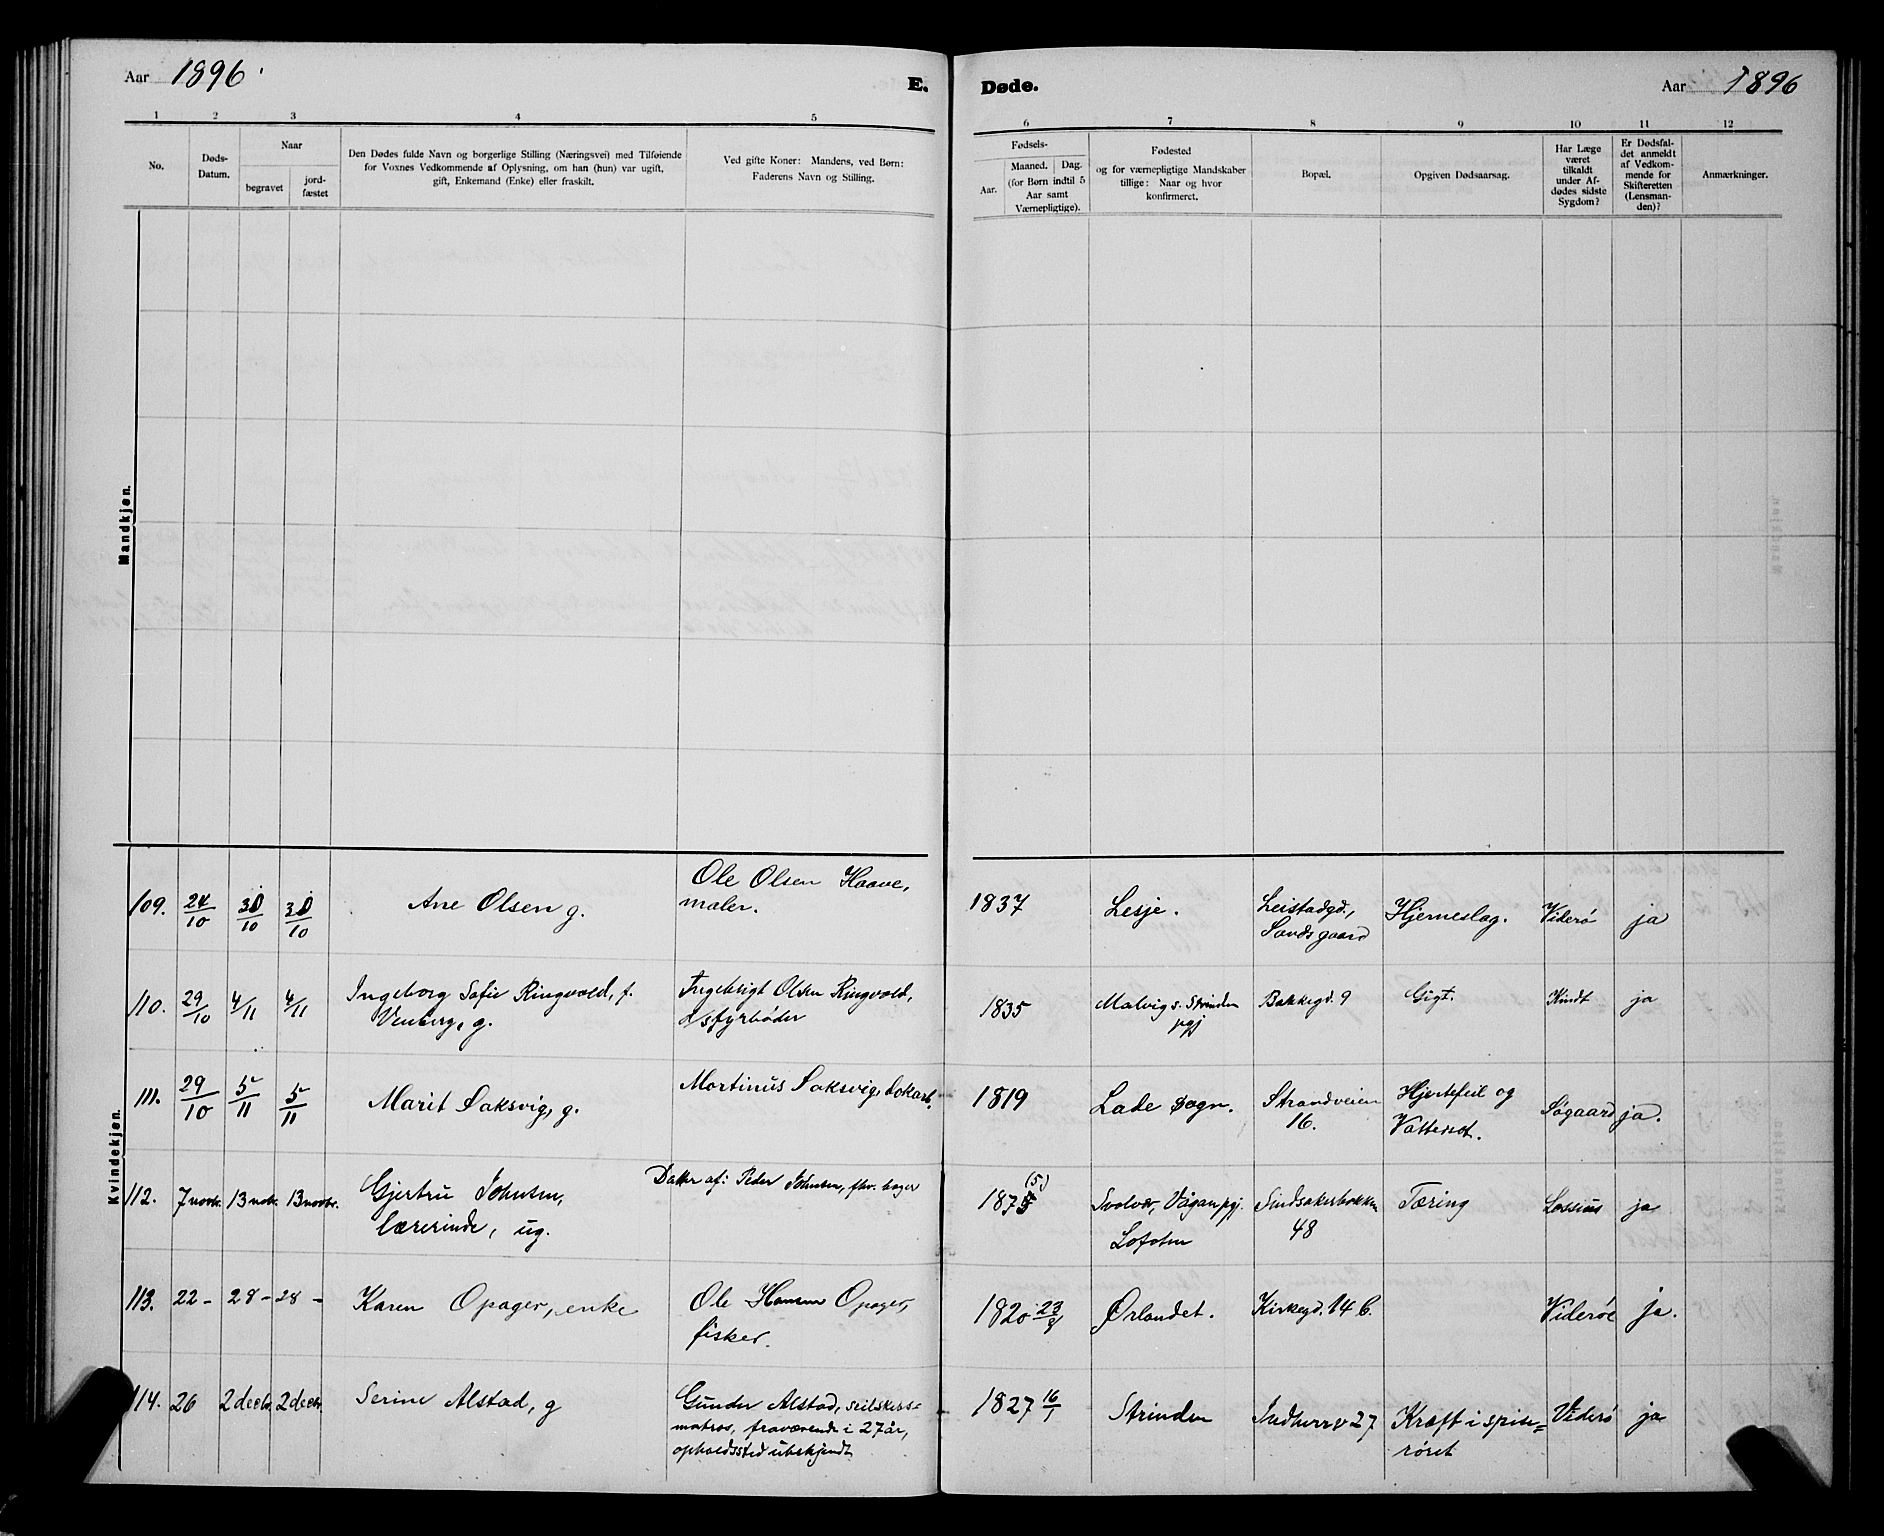 Aar 1896.
E. Døde.
Aar 1896
1 2 3 4 5 6 7 8 9 10 11 12
No.
Døds-
Datum.
Naar
begravet
jord-
fæstet
Den Dødes fulde Navn og borgerlige Stilling (Næringsvei) med Tilføiende
for Voxnes Vedkommende af Oplysning, om han (hun) var ugift,
gift, Enkemand (Enke) eller fraskilt.
Ved gifte Koner: Mandens, ved Børn:
Faderens Navn og Stilling.
Fødsels-
Aar.
Maaned. Dag.
(for Børn indtil 5
Aar samt
Værnepligtige).
Fødested
og for værnepligtige Mandskaber
tillige: Naar og hvor
konfirmeret.
Bopæl.
Opgiven Dødsaarsag.
Har Læge
været
tilkaldt
under Af-
dødes sidste
Sygdom?
Er Dødsfal-
det anmeldt
af Vedkom-
mende for
Skifteretten
(Lensman-
den)?
Anmærkninger.
Mandkjøn.
Kvindekjøn.
109. 24/10 30/10 30/10 Ane Olsen g.
Ole Olsen Haave,
maler.
1837 Lesje.
Leistadgd.,
Sandsgaard
Hjerneslag. Viderö ja
110. 29/10 4/11 4/11
Ingeborg Sofie Ringvold, f.
Venberg, g.
Ingebrigt Olsen Ringvold,
dsfyrbøder
1835
Malvig s. Strinden
pgj
Bakkegd. 9 Gigt. Kindt ja
111. 29/10 5/11 5/11 Marit Saksvig, g.
Martinus Saksvig, dokarb.
1819 Lade sogn.
Strandveien
16.
Hjertefeil og
Vattersot.
Søgaard ja.
112. 7 novbr. 13 nobr. 13 novbr.
Gjertru Johnsen,
lærerinde, ug.
Datter af: Peder Johnsen, fhv. bager
1875 (5)
Svolvær, Vågan pgj.
Lofoten
Sindsakerbakken
48
Tæring Lossius ja
113. 22 - 28 - 28 - Karen Opager, enke
Ole Hansen Opager,
fisker.
1820 23/8 Ørlandet. Kirkegd. 14 b. Videröe ja.
114. 26 2 decbr. 2 decbr. Serine Alstad, g
Gunder Alstad, seilskers=
matros, fraværende i 27 år,
opholdssted ubekjendt
1827 16/1 Strinden Indherrv 27
Kræft i spise=
røret
Viderö ja